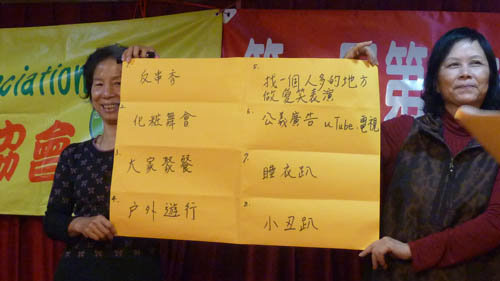 ciation
協會
第一屆第
1.
反串秀
2.
化粧舞會
3.
大家聚餐
4.
戶外遊行
5.
找一個人多的地方
做愛笑表演
6.
公義廣告 uTube、電視
7.
睡衣趴
8.
小丑趴